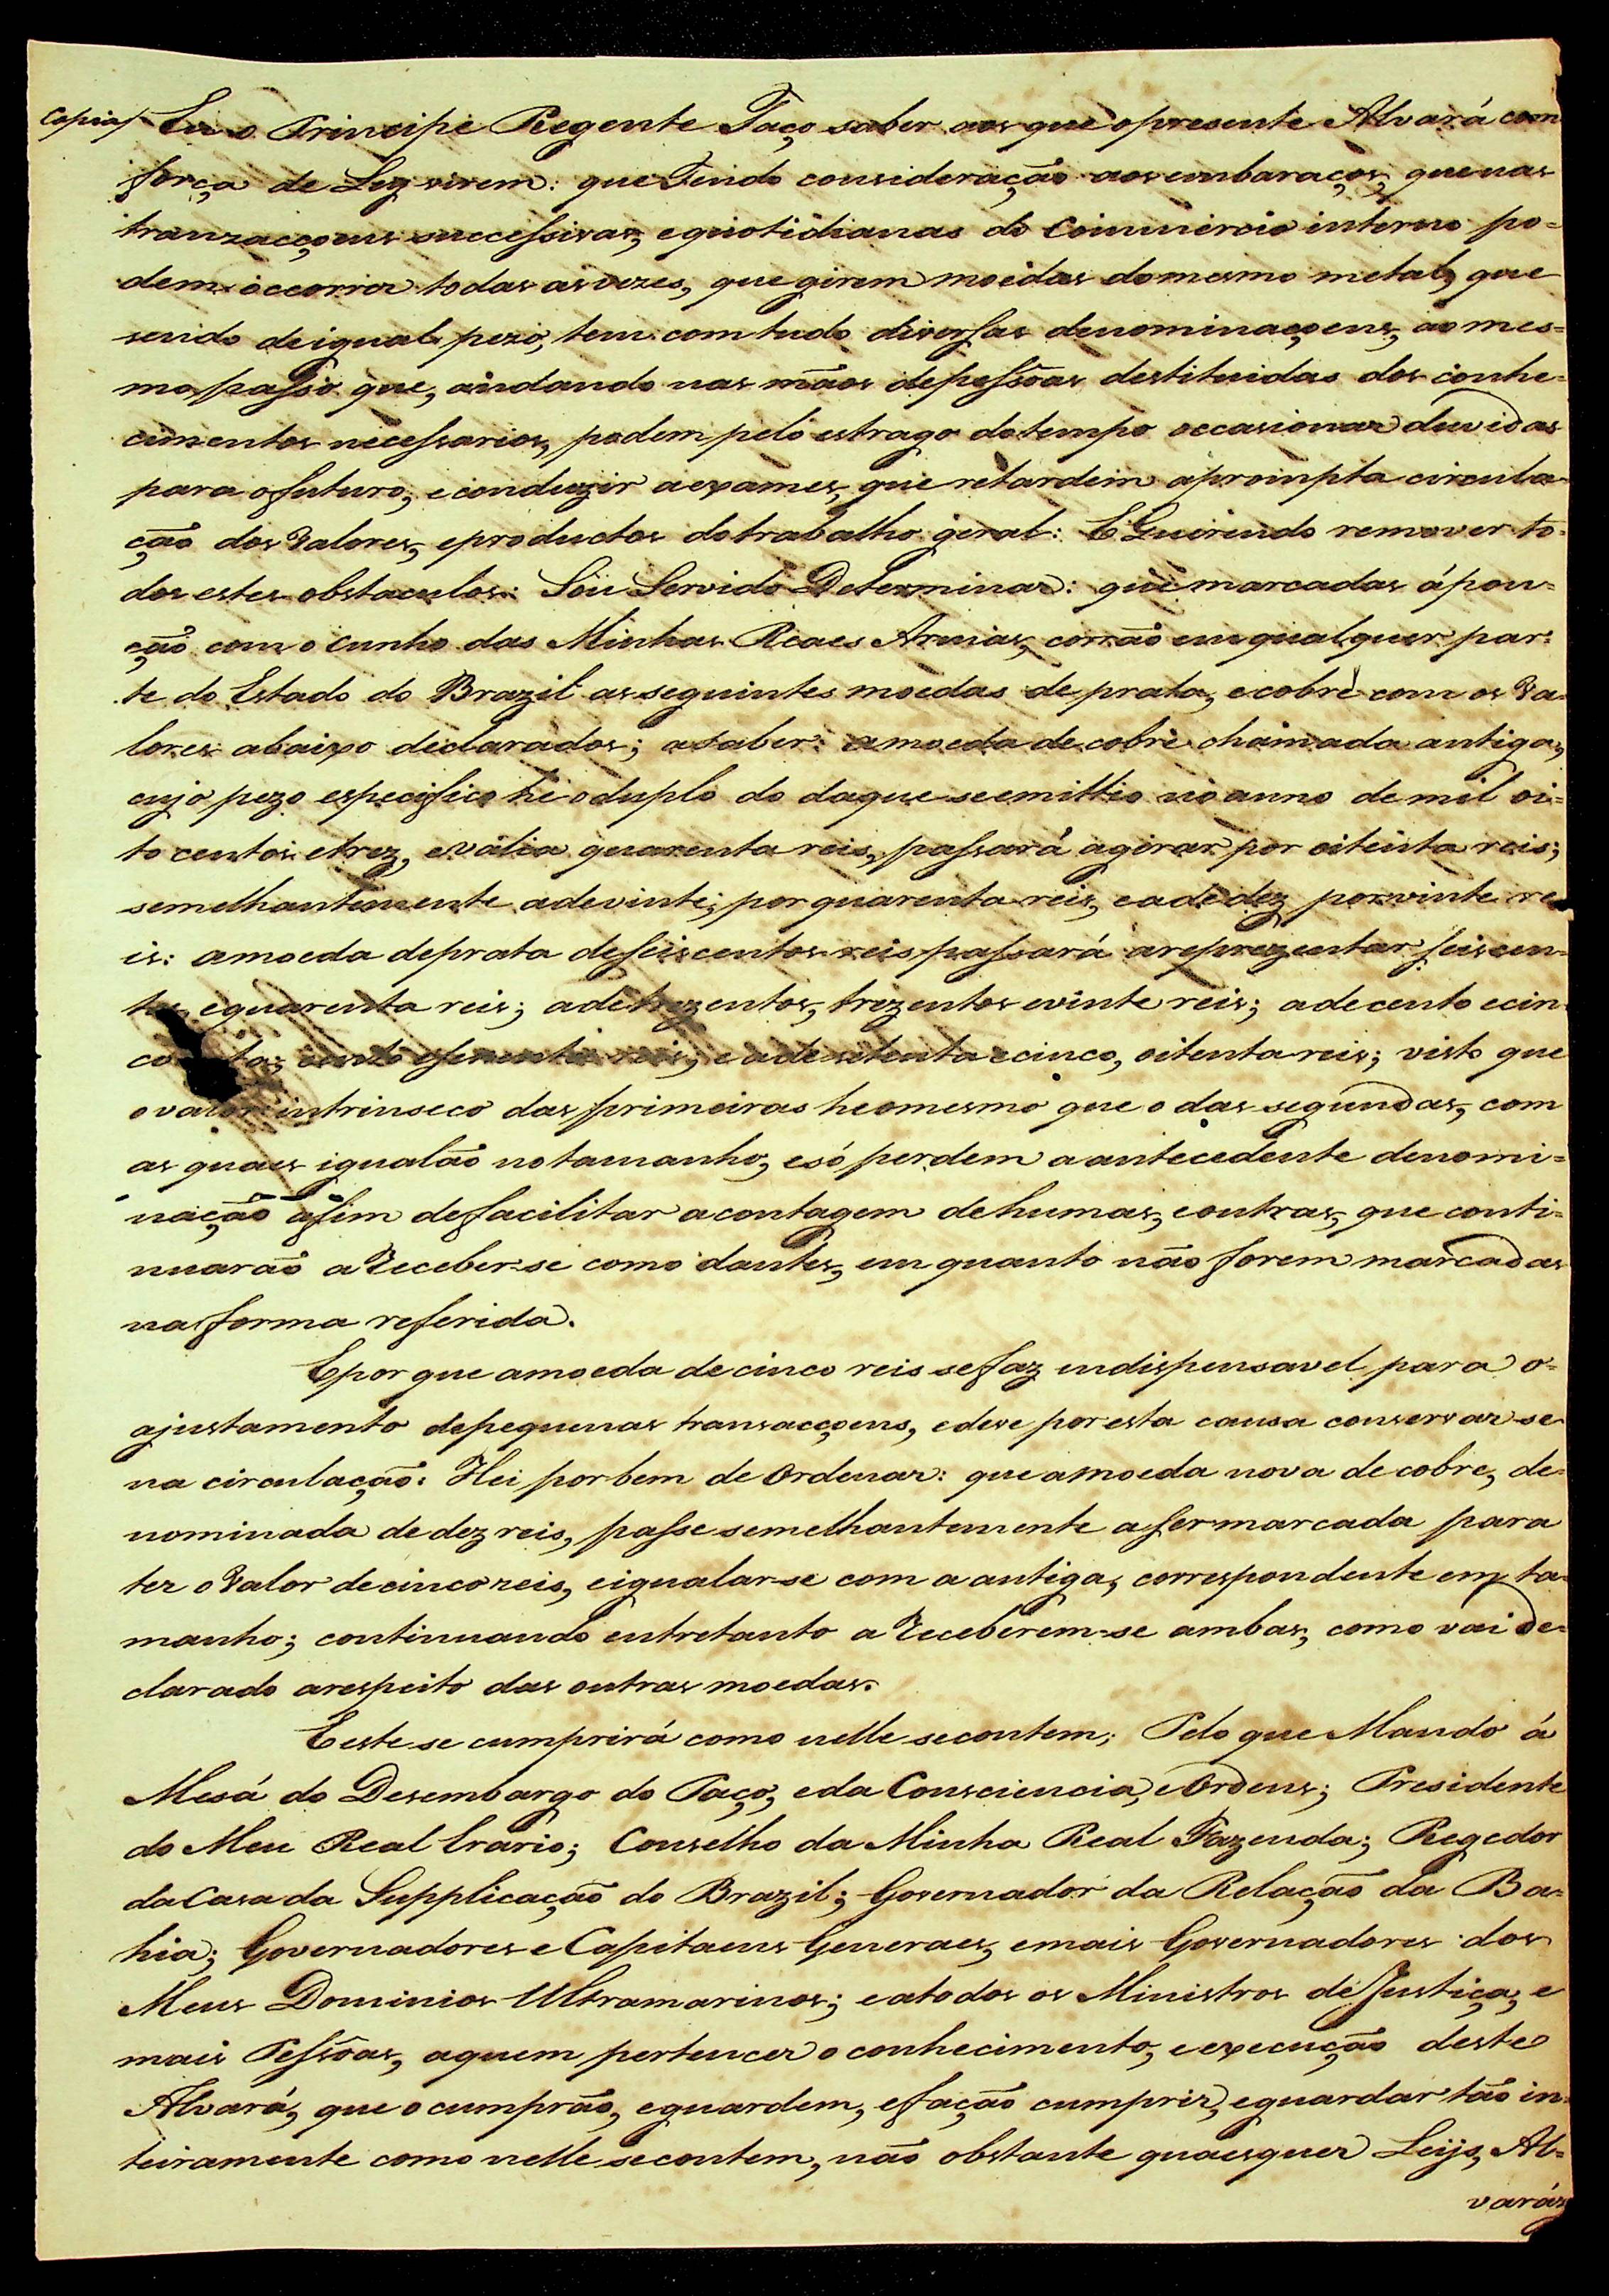 Copia / Eu o Principe Regente Faço saber aos que o presente Alvará com
força de Ley virem: que Tendo consideração aos embaraços, que nas
tranzacçoens successivas, e quotidianas do Commercio interno po=
dem occorrer todas as vezes, que girem moedas do mesmo metal, que
sendo de igual pezo, tem com tudo diversas denominaçoens, ao mes=
mo passo que, andando nas mãos de pessôas destituidas dos conhe=
cimentos necessarios, podem pelo estrago do tempo occasionar duvidas
para o futuro, e conduzir a exames, que retardem a prompta circula=
ção dos Valores, e productos do trabalho geral: E Querendo remover to=
dos estes obstaculos: Sou Servido Determinar: que marcadas á pun=
ção com o cunho das Minhas Reaes Armas, corrão em qualquer par=
te do Estado do Brazil as seguintes moedas de prata, e cobre com os Va=
lores abaixo declarados; a saber: a moeda de cobre chamada antiga,
cujo pezo especifico he o duplo do da que se emittio no anno de mil oi=
to centos e trez, e valia quarenta reis, passará a girar por oitenta reis;
semelhantemente a de vinte, por quarenta reis, e a de dez por vinte re
is: a moeda de prata de seis centos reis passará a reprezentar seis cen=
tos, e quarenta reis; a de trezentos, trezentos e vinte reis; a de cento e cin
coenta, cento e sessenta reis, e a de setenta e cinco, oitenta reis; visto que
o valor intrinseco das primeiras he o mesmo que o das segundas, com
as quaes igualão no tamanho, e só perdem a antecedente denomi=
nação afim de facilitar a contagem de humas, e outras, que conti=
nuarão a receber-se como dantes, em quanto não forem marcadas
na forma referida.
E por que a moeda de cinco reis se faz indispensavel para o=
ajustamento de pequenas transacçoens, e deve por esta causa conservar-se
na circulação: Hei por bem de Ordenar: que a moeda nova de cobre, de=
nominada de dez reis, passe semelhantemente a ser marcada para
ter o Valor de cinco reis, e igualar-se com a antiga, correspondente em ta=
manho; continuando entretanto a receberem-se ambas, como vai de=
clarado a respeito das outras moedas.
E este se cumprirá como nelle se contem; Pelo que Mando á
Mesa do Desembargo do Paço, e da Consciencia, e Ordens; Presidente
do Meu Real Erario; Conselho da Minha Real Fazenda; Regedor
da Casa da Supplicação do Brazil; Governador da Relação da Ba=
hia; Governadores e Capitaens Generaes, e mais Governadores dos
Meus Dominios Ultramarinos; e a todos os Ministros de Justiça, e
mais Pessôas, a quem pertencer o conhecimento, e execução deste
Alvará, que o cumprão, e guardem, e fação cumprir, e guardar tão in=
teiramente como nelle se contem, não obstante quaesquer Leys, Al=
varás